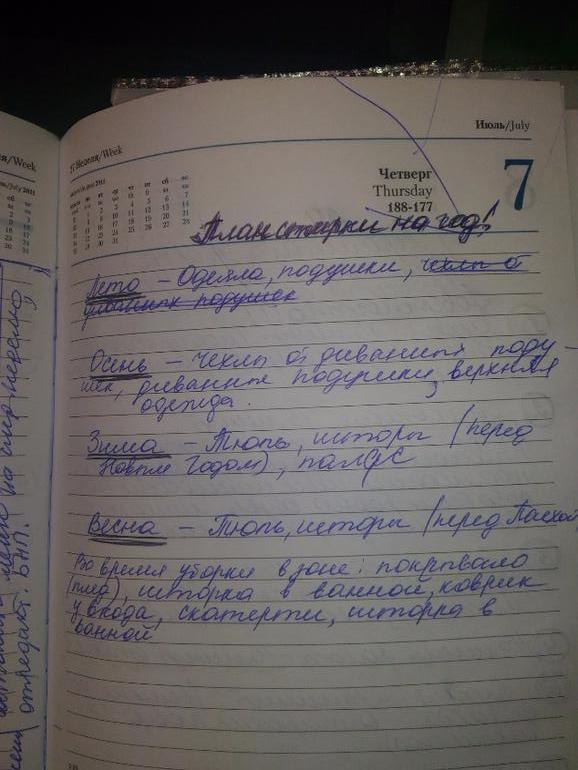 я/Week
/July 2011
27 Неделя/Week
Июль/July
Четверг
Thursday
188-177
7
План стирки на год!
Лето – Одеяла, подушки, чехлы от
диванных подушек
Осень – чехлы от диванных поду-
шек, диванные подушки, верхняя
одежда.
Зима – Тюль, шторы (перед
Новым Годом),
Весна – Тюль, шторы (перед Пасхой
Во время уборки в зоне: покрывало
(плед), шторка в ванной, коврик
у входа, скатерти, шторка в
ванной
меню на
отредакт. БНП.